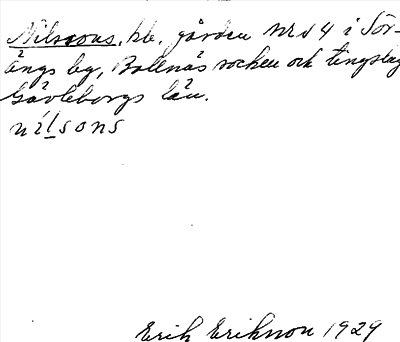 Nilssons, hb. gården nr 14 i Sör-
ängs by, Bollnäs socken och tingslag
Gävleborgs län.
nílsons
Erik Erikson 1929